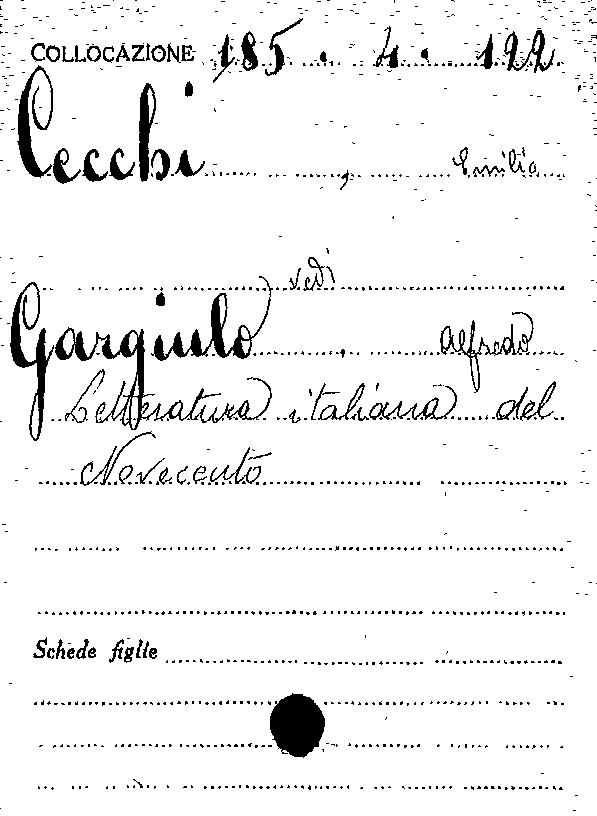 COLLOCAZIONE 185. 4. 122
Cecchi, Emilia
vedi
Gargiulo, Alfredo
Letteratura italiana del
Novecento
Schede figlie